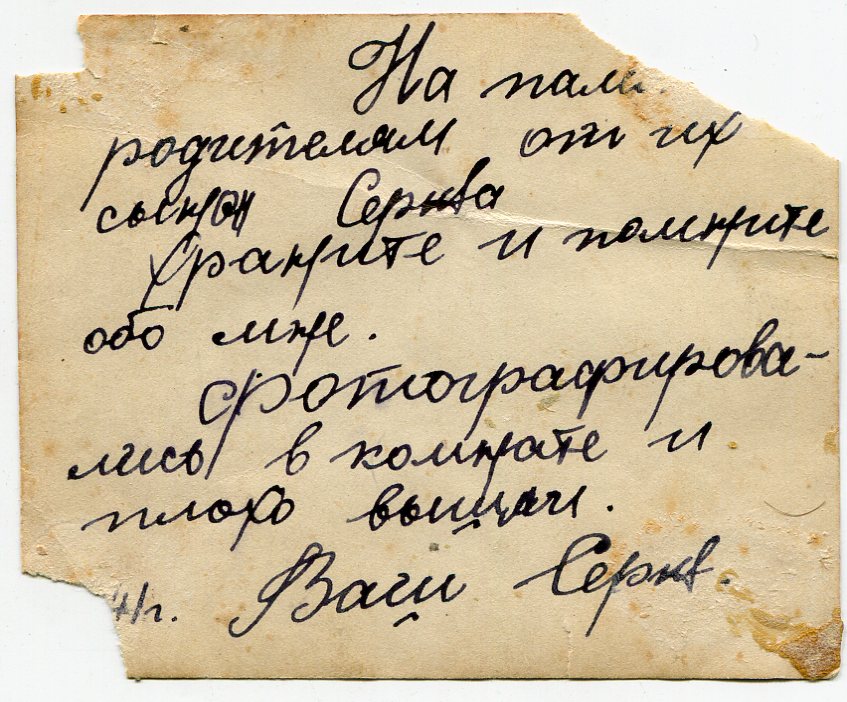 На пам
родителям от их
сынон Сернва
Храните и помните
обо мне.
Фотографирова-
лись в комнате и
плохо вышли.
41г. Ваш Сернв.